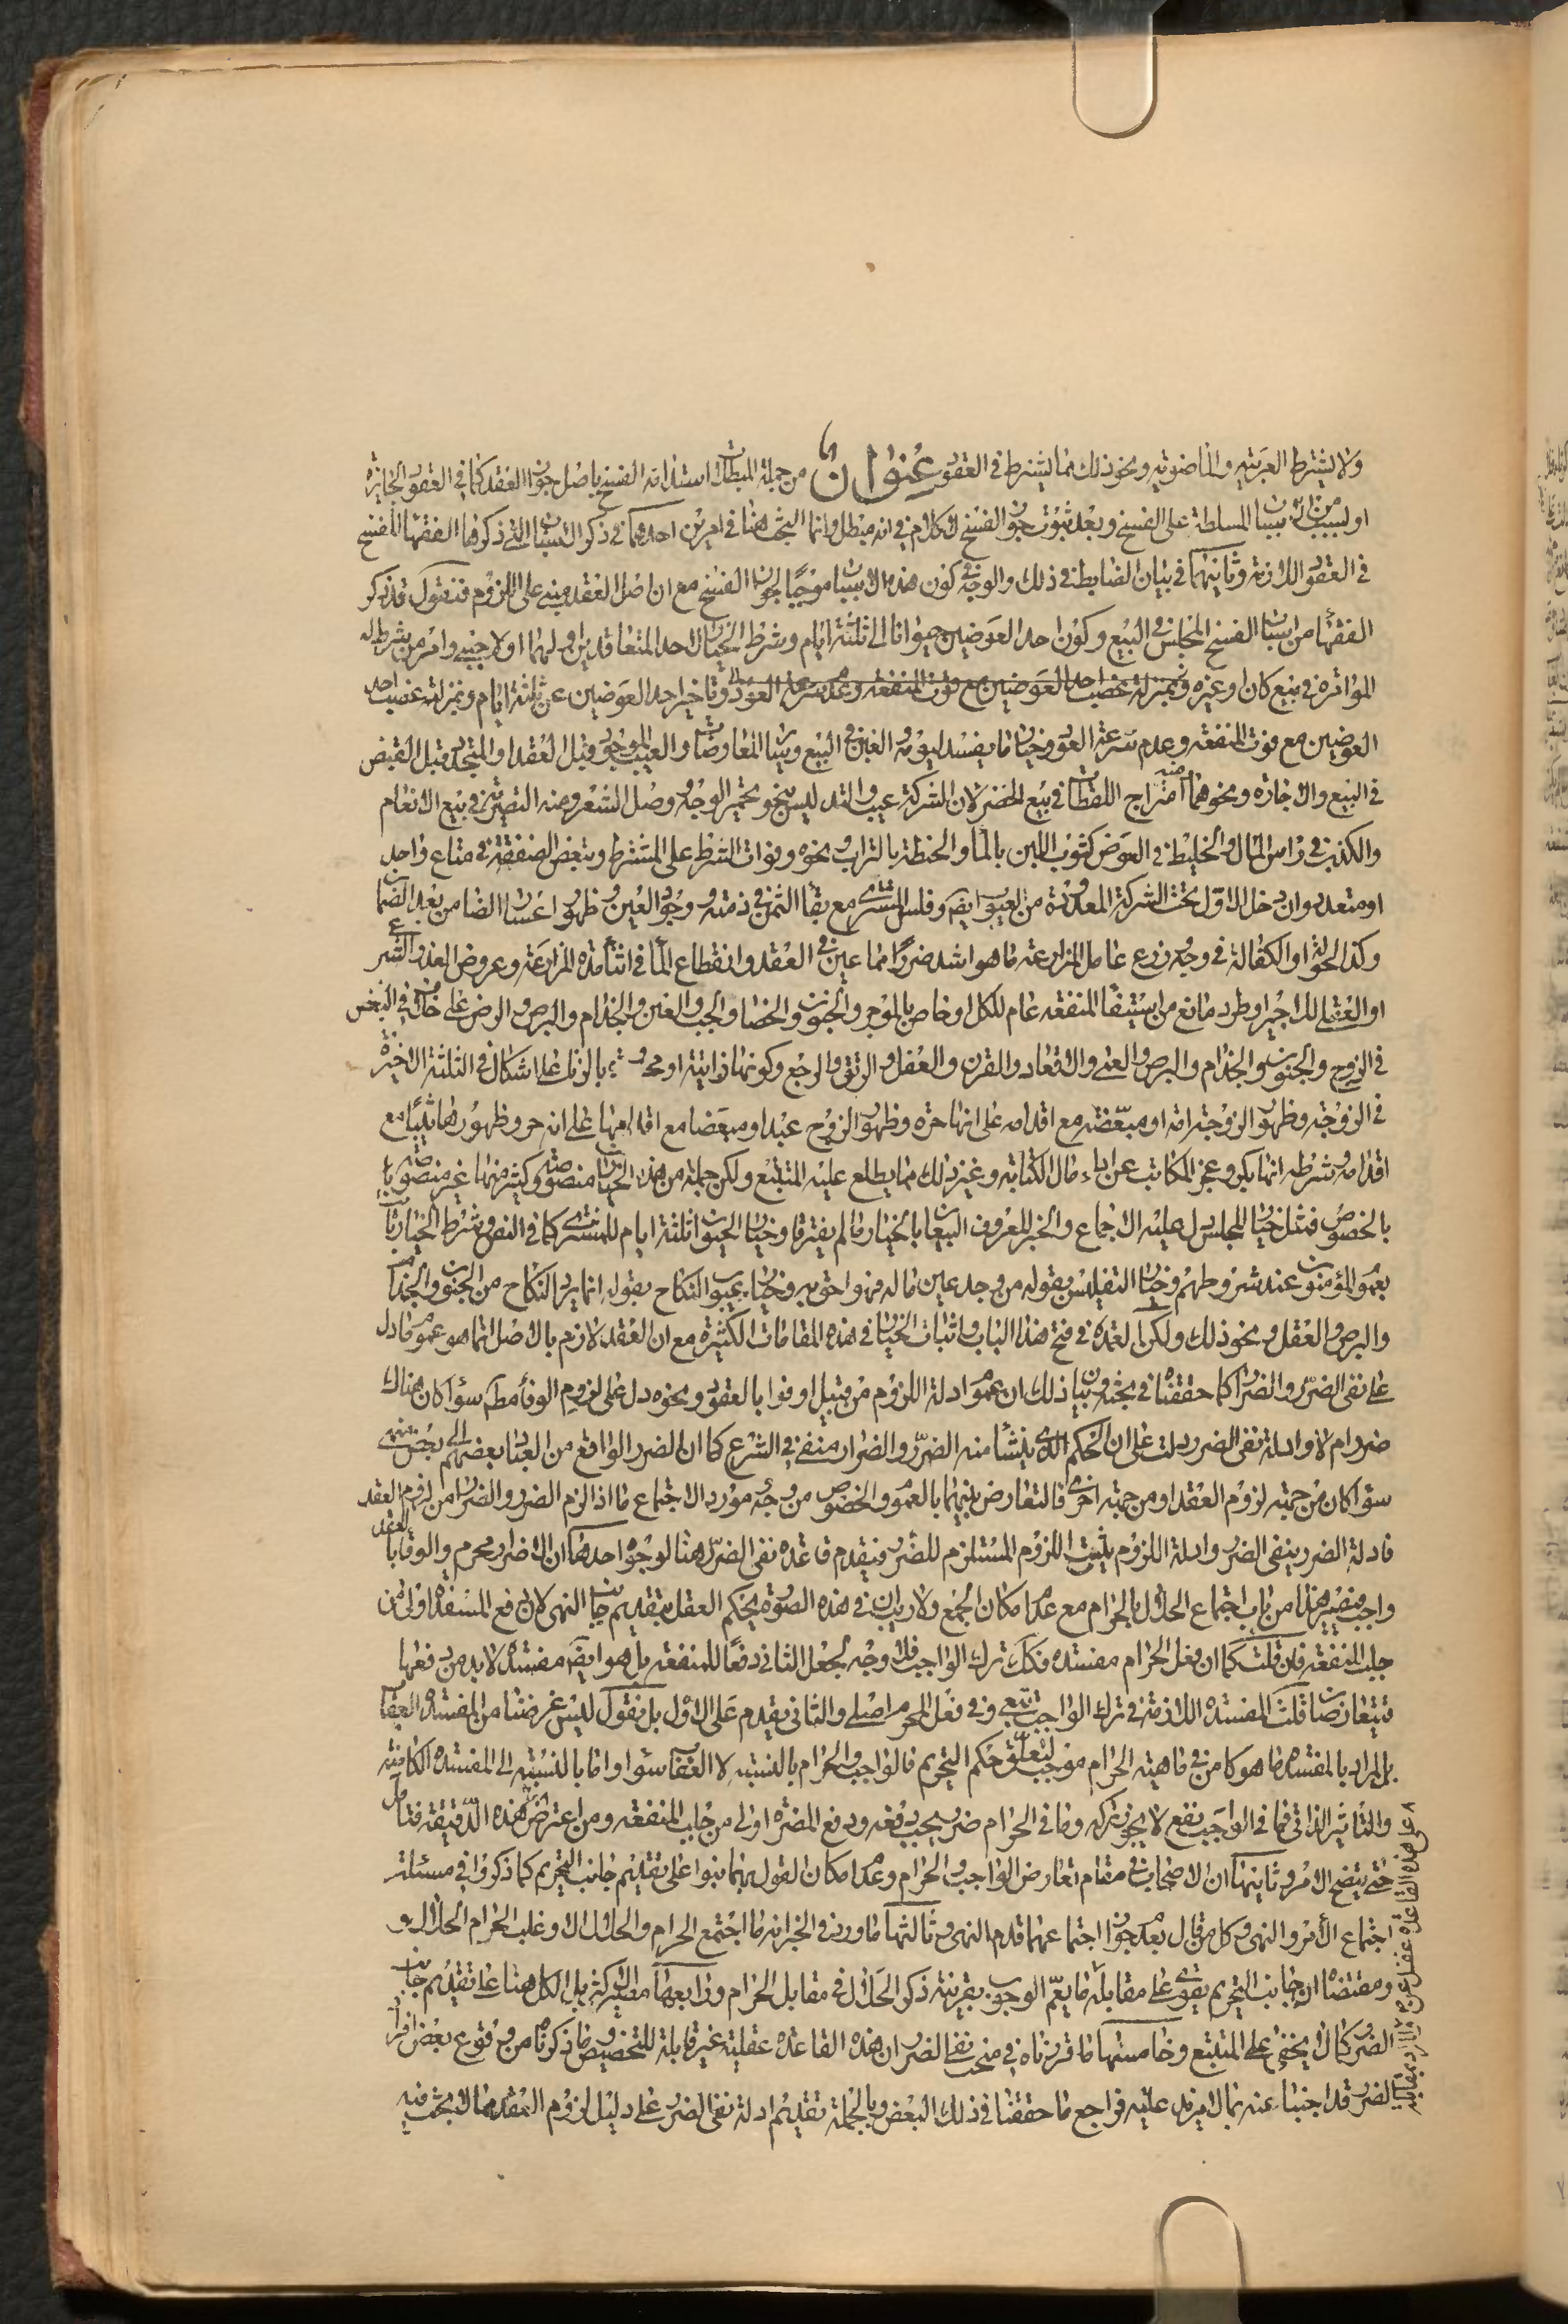 ولا يشترط العربيه والماضويه ونحو ذلك مما يشترط في العقود عنوان من جملة المبطلات استدامة الفسخ باصل جواز العقد كما في العقود الجايزة
او لسبب من اسباب المسلطة على الفسخ وبعد ثبوت جواز الفسخ لا كلام في انه مبطل وانما البحث هنا في امرين احدهما في ذكر الاسباب التي ذكروها الفقهاء للفسخ
في العقود اللازمة وثانيهما في بيان الضابط في ذلك والوجه في كون هذه الاسباب موجبا لجواز الفسخ مع ان اصل العقد مبني على اللزوم فنقول قد ذكر
الفقهاء من اسباب الفسخ المجلس في البيع وكون احد العوضين حيوانا الى ثلثة ايام وشرط الخيار لاحد المتعاقدين او لهما او لاجنبي وامر من يشرط له
المؤامرة في بيع كان او غيره وتاخير احد العوضين عن ثلثة ايام وبمنزلته غصب احد
العوضين مع فوت المنفعه وعدم سرعة العود وخيار ما يفسد ليومه والغبن في البيع وساير المعاوضات والعيب الموجود قبل العقد او المتجدد قبل القبض
في البيع والاجارة ونحوهما امتزاج اللقطات في بيع الخضر لان الشركة عيب والتدليس بنحو تحمير الوجه ووصل الشعر ومنه التصرية في بيع الانعام
والكذب في راس المال والخليط في العوض كشوب اللبن بالماء والحنطة بالتراب ونحوه وفوات الشرط على المشترط وتبعض الصفقة في متاع واحد
او متعدد وان دخل الاول تحت الشركة المعدودة من العيوب ايضا وفلس المشتري مع بقاء الثمن في ذمته ووجود العين وظهور اعسار الضامن بعد الضمان
وكذا الحوالة او الكفالة في وجه وزرع عامل المزارعة ما هو اشد ضررا مما عين في العقد وانقطاع الماء في اثناء مدة المزارعة وعروض العذر الشرعي
او العقلي للاجير او طرو مانع من استيفاء المنفعه عام للكل او خاص بالموجر والجنون والخصاء والجب والعنن والجذام والبرص والرض على خلاف في البعض
في الزوج والجنون والجذام والبرص والعمى والاقعاد والقرن والعفل والرتق والرجع وكونها زانية او محدودة بالزنا على اشكال في الثلثة الاخيرة
في الزوجة وظهور الزوجة امة او مبعضة مع اقدامه على انها حرة وظهور الزوج عبدا او مبعضا مع اقدامها على انه حر وظهورها ثيبا مع
اقدامه وشرطه انها بكر وعجز المكاتب عن اداء مال الكتابه وغير ذلك مما يطلع عليه المتتبع ولكن جملة من هذه الخيارات منصوصة وكثير منها غير منصوصة
بالخصوص فمثل خيار المجلس دل عليه الاجماع والخبر المعروف البيعان بالخيار ما لم يفترقا وخيار الحيوان ثلثة ايام للمشتري كما في النص وشرط الخيار ثابت
بعموم المؤمنون عند شروطهم وخيار التفليس بقوله من وجد عين ماله فهو احق به وخيار عيوب النكاح بقوله انما يرد النكاح من الجنون والجذام
والبرص والعفل ونحو ذلك ولكن العمدة في فتح هذا الباب واثبات الخيار في هذه المقامات الكثيرة مع ان العقد لازم بالاصل انما هو عموم ما دل
على نفي الضرر والضرار كما حققناه في بحثه وبيان ذلك ان عموم ادلة اللزوم من قبيل اوفوا بالعقود ونحوه دل على لزوم الوفاء مط سواء كان هناك
ضرر ام لا وادلة نفي الضرر دلت على ان الحكم الذي ينشأ منه الضرر والضرار منفي في الشرع كما ان الضرر الواقع من العباد بعضهم الى بعض منهي
سواء كان من جهة لزوم العقد او من جهة اخرى فالتعارض بينهما بالعموم والخصوص من وجه مورد الاجتماع ما اذا لزم الضرر والضرار من لزوم العقد
فادلة الضرر ينفي الضرر وادلة اللزوم يثبت اللزوم المستلزم للضرر فيقدم قاعدة نفي الضرر هنا لوجوه احدها ان الاضرار محرم والوفاء بالعقد
واجب فيصير هذا من باب اجتماع الحلال بالحرام مع عدم امكان الجمع ولا ريب ان في هذه الصورة يحكم العقل بتقديم جانب النهي لان دفع المفسدة اولى من
جلب المنفعة فان قلت كما ان فعل الحرام مفسدة فكك ترك الواجب فلا وجه لجعل الثاني دفعا للمنفعة بل هو ايضا مفسدة لا بد من دفعها
فيتعارضان قلت المفسدة اللازمة في ترك الواجب تبعي وفي فعل المحرم اصلي والثاني يقدم على الاول بل نقول ليس غرضنا من المفسدة العقاب
بل المراد بالمفسدة ما هو كامن في ماهية الحرام موجب لتعلق حكم التحريم فالواجب والحرام بالنسبة لا العقاب سواء واما بالنسبة الى المفسدة الكامنة
والتأثير الذاتي فما في الواجب نفع لا يجوز تركه وما في الحرام ضرر يجب دفعه ودفع المضرة اولى من جلب المنفعة ومن اعترض هذه الدقيقة فتامل
حتى يتضح الامر وثانيها ان الاصحاب في مقام تعارض الواجب والحرام وعدم امكان القول بهما بنوا على تقديم جانب التحريم كما ذكروا في مسئلة
اجتماع الأمر والنهي وكل من قال بعدم جواز اجتماعهما قدم النهي وثالثها ما ورد في الخبر انه ما اجتمع الحرام والحلال الا وغلب الحرام الحلال و
ومقتضاه ان جانب التحريم يقوى على مقابله ما يعم الوجوب بقرينة ذكر الحلال في مقابل الحرام ورابعها مصير الكل هنا على تقديم جانب
الضرر كما لا يخفى على المتتبع وخامسها ما قررناه في مبحث نفي الضرر ان هذه القاعدة عقلية غير قابلة للتخصيص وما ذكرناه من وقوع بعض افراد
الضرر قد اجبنا عنه بما لا مزيد عليه فراجع ما حققنا في ذلك البعض وبالجملة تقديم ادلة نفي الضرر على دليل لزوم العقد مما لا بحث فيه